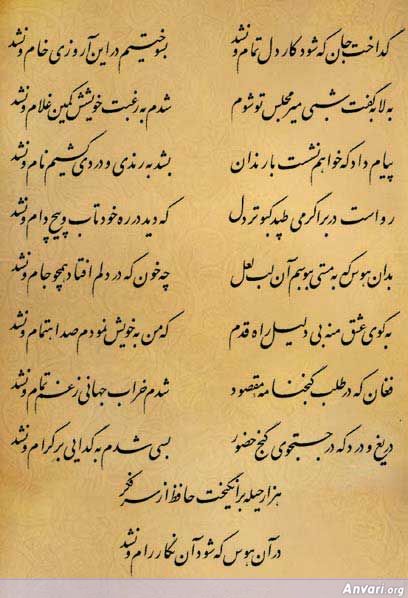 گداخت جان که شود کار دل تمام و نشد بسوختیم در این آرزوی خام و نشد
به لابه گفت شبی میر مجلس تو شوم شدم به رغبت خویشش کمین غلام و نشد
پیام داد که خواهم نشست با رندان بشد به رندی و دردی کشیم نام و نشد
رواست در بر اگر می طپد کبوتر دل که دید در ره خود تاب و پیچ دام و نشد
بدان هوس که به مستی ببوسم آن لب لعل چه خون که در دلم افتاد همچو جام و نشد
به کوی عشق منه بی دلیل راه قدم که من به خویش نمودم صد اهتمام و نشد
فغان که در طلب گنجنامه مقصود شدم خراب جهانی ز غم تمام و نشد
دریغ و درد که در جستجوی گنج حضور بسی شدم به گدایی بر کرام و نشد
هزار حیله برانگیخت حافظ از سر فکر
در آن هوس که شود آن نگار رام و نشد
Anvari.org